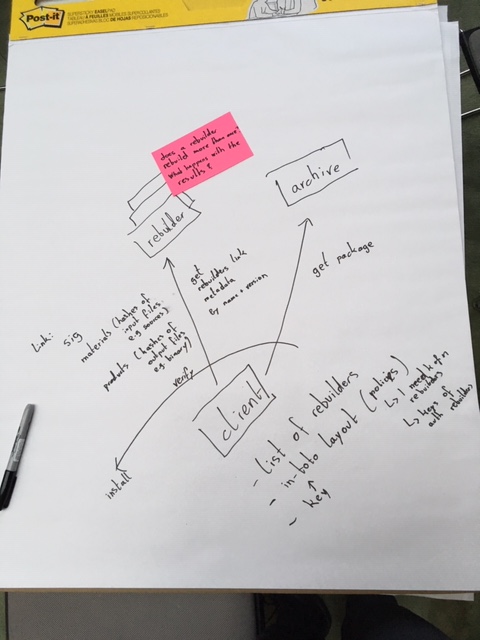 Post-it
SUPERSTICKY EASEL PAD
does a rebuilder
rebuild more than once?
What happens with the
results?
rebuilder
archive
get
rebuilders link
metadata
by name + version
get package
Link: sig
materials (hashes of
input files.
e.g sources)
products (hashes of
output files
e.g. binary)
verify
client
install
- List of rebuilders
- in-toto layout (policies)
- key
↳ I need k of n
rebuilders
↳ keys of
auth rebuilders